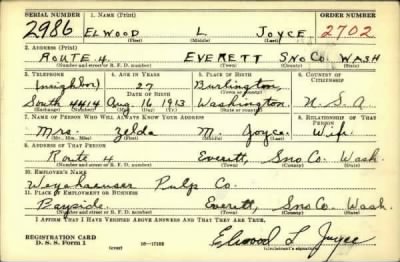 SERIAL NUMBER 1. NAME (Print) ORDER NUMBER
2986 ELWOOD L JOYCE 2702
(First) (Middle) (Last)
2. ADDRESS (Print)
ROUTE 4. EVERETT SNO CO. WASH
(Number and street or R. F. D. number) (Town) (County) (State)
3. TELEPHONE 4. AGE IN YEARS 5. PLACE OF BIRTH 6. COUNTRY OF CITIZENSHIP
(neighbor) 27 Burlington,
DATE OF BIRTH (Town or county)
South 4414 Aug. 16 1913 Washington. U. S. A
(Exchange) (Number) (Mo.) (Day) (Yr.) (State or country)
7. NAME OF PERSON WHO WILL ALWAYS KNOW YOUR ADDRESS 8. RELATIONSHIP OF THAT PERSON
Mrs. Zelda M. Joyce. Wife.
(Mr., Mrs., Miss) (First) (Middle) (Last)
9. ADDRESS OF THAT PERSON
Route 4 Everett, Sno Co. Wash.
(Number and street or R. F. D. number) (Town) (County) (State)
10. EMPLOYER'S NAME
Weyahaeuser Pulp Co.
11. PLACE OF EMPLOYMENT OR BUSINESS
Bayside. Everett, Sno Co. Wash.
(Number and street or R. F. D. number) (Town) (County) (State)
I AFFIRM THAT I HAVE VERIFIED ABOVE ANSWERS AND THAT THEY ARE TRUE.
REGISTRATION CARD
D. S. S. Form 1 (over) Elwood L Joyce
(Registrant's signature)